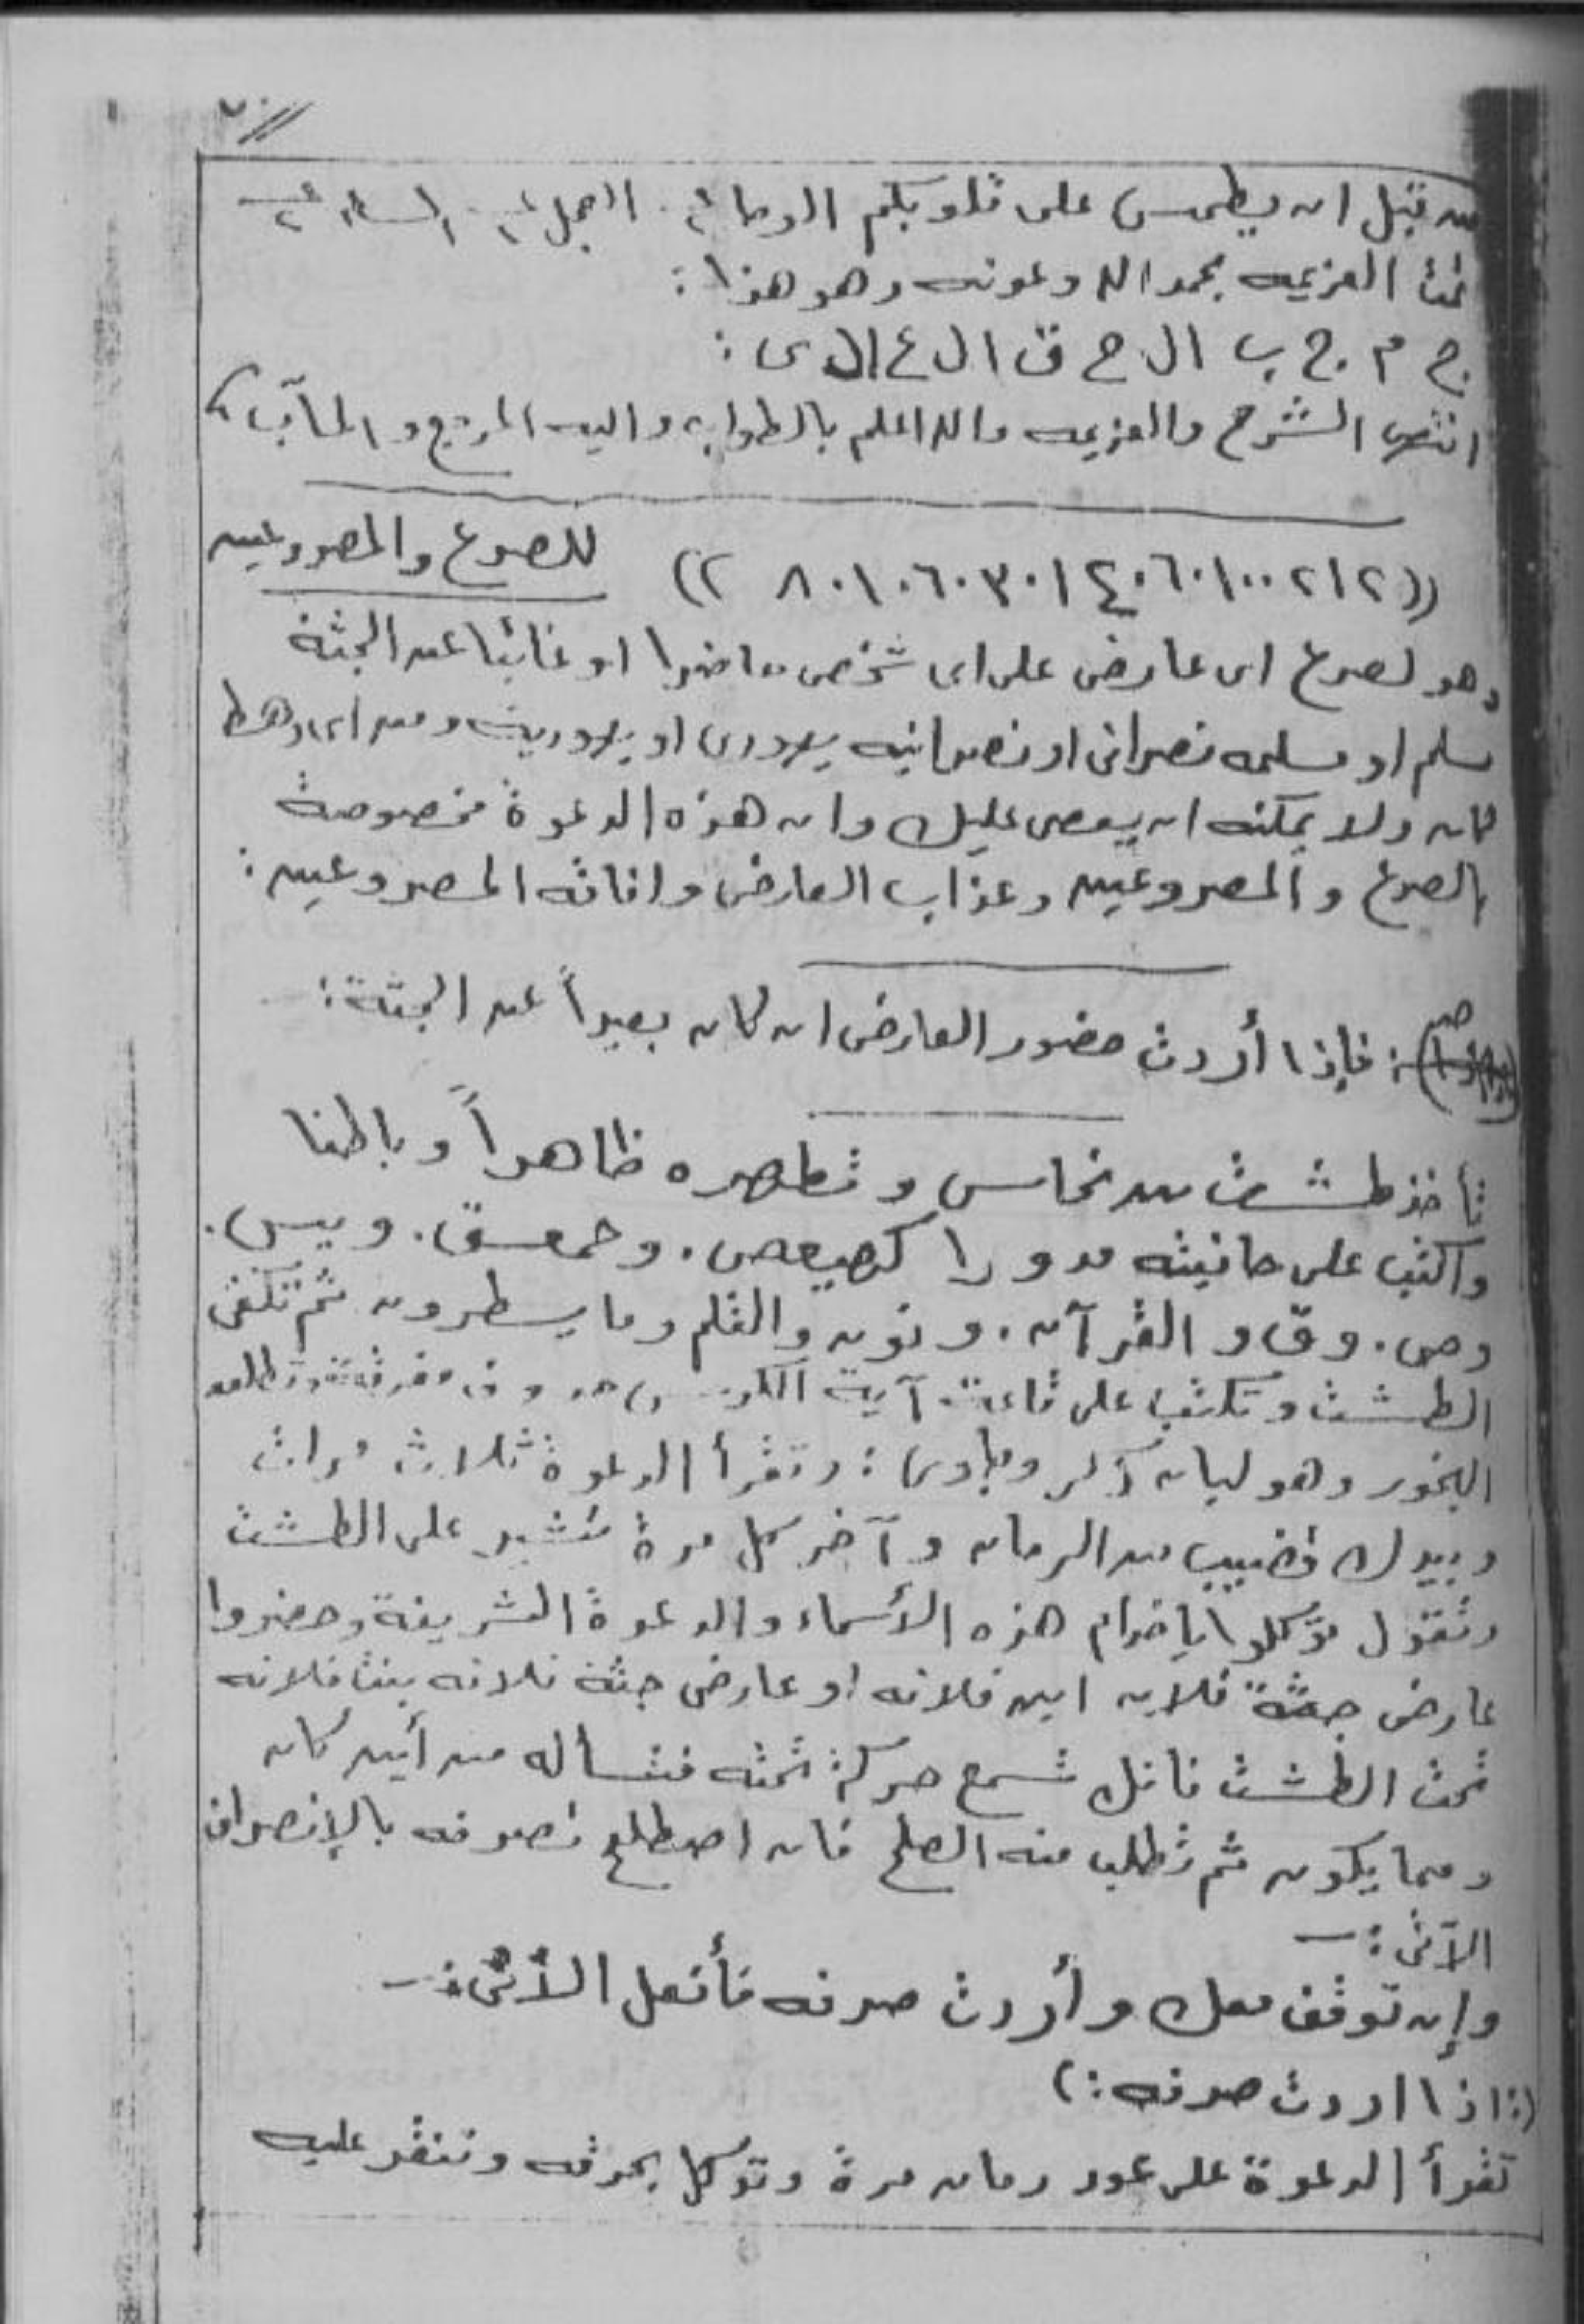 من قبل ان يطمس على قلوبكم الوحا ٢ العجل ٢ الساعه ٢
تمت العزيمه بحمد الله وعونه وهو هذا :
ج م ج ب ال ح ق ال ع ال ى :
انتهى الشرح والعزيمه والله اعلم بالصواب واليه المرجع والمآب
للصرع والمصروعين
وهو لصرع اى عارض على اى شخص حاضرا او غائبا عن الجثة
مسلم او مسلمه نصرانى او نصرانيه يهودى او يهوديه ومن اى رهط
كان ولا يمكنه ان يعصى عليك وان هذه الدعوة مخصوصة
بالصرع والمصروعين وعذاب العارض وافاقه المصروعين :
صح : فإذا أردت حضور العارض ان كان بعيداً عن الجثة :
تأخذ طشت من نحاس وتطهره ظاهراً وباطنا
واكتب على حافيته مدورا كهيعص . وحمعسق . ويس .
وص . وق والقرآن . ونون والقلم وما يسطرون ثم تكفى
الطشت وتكتب على قاعته آية الكرسى حروف مفرقة وتطلق
البخور وهو لبان ذكر وجاوى : وتقرأ الدعوة ثلاث مرات
وبيدك قضيب من الرمان وآخر كل مرة تشير على الطشت
وتقول توكلوا ياخدام هذه الأسماء والدعوة الشريفة وحضروا
عارض جثة فلان ابن فلانه او عارض جثة فلانه بنت فلانه
تحت الطشت فانك تسمع حركة تحته فتسأله من أين كان
ومما يكون ثم تطلب منه الصلح فان اصطلح تصرفه بالإنصراف
الآتى :—
وإن توقف معك وأردت صرفه فأفعل الأتى :—
(: اذا اردت صرفه :)
تقرأ الدعوة على عود رمان مرة وتوكل بحرقه وتنقر عليه